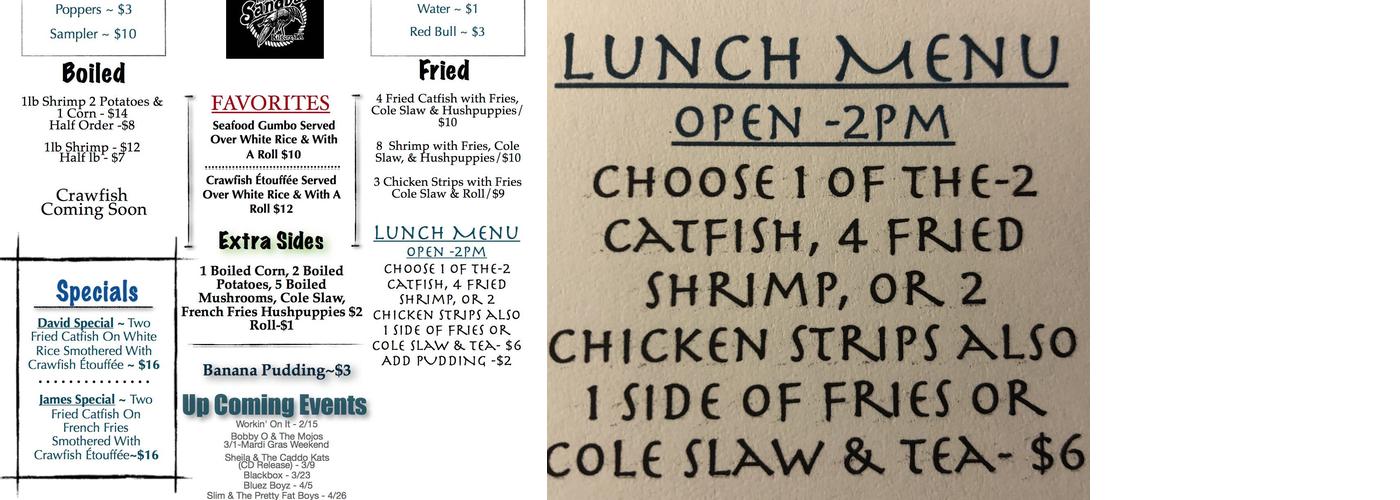 Poppers ~ $3
Sampler ~ $10
Boiled
1lb Shrimp 2 Potatoes &
1 Corn - $14
Half Order -$8
1lb Shrimp - $12
Half lb - $7
Crawfish
Coming Soon
Specials
David Special ~ Two
Fried Catfish On White
Rice Smothered With
Crawfish Étouffée ~ $16
James Special ~ Two
Fried Catfish On
French Fries
Smothered With
Crawfish Étouffée~$16
FAVORITES
Seafood Gumbo Served
Over White Rice & With
A Roll $10
Crawfish Étouffée Served
Over White Rice & With A
Roll $12
Extra Sides
1 Boiled Corn, 2 Boiled
Potatoes, 5 Boiled
Mushrooms, Cole Slaw,
French Fries Hushpuppies $2
Roll-$1
Banana Pudding~$3
Up Coming Events
Workin' On It - 2/15
Bobby O & The Mojos
3/1-Mardi Gras Weekend
Sheila & The Caddo Kats
(CD Release) - 3/9
Blackbox - 3/23
Bluez Boyz - 4/5
Slim & The Pretty Fat Boys - 4/26
Water ~ $1
Red Bull ~ $3
Fried
4 Fried Catfish with Fries,
Cole Slaw & Hushpuppies/
$10
8 Shrimp with Fries, Cole
Slaw, & Hushpuppies/$10
3 Chicken Strips with Fries
Cole Slaw & Roll/$9
LUNCH MENU
OPEN -2PM
CHOOSE 1 OF THE-2
CATFISH, 4 FRIED
SHRIMP, OR 2
CHICKEN STRIPS ALSO
1 SIDE OF FRIES OR
COLE SLAW & TEA- $6
ADD PUDDING -$2
LUNCH MENU
OPEN -2PM
CHOOSE 1 OF THE-2
CATFISH, 4 FRIED
SHRIMP, OR 2
CHICKEN STRIPS ALSO
1 SIDE OF FRIES OR
COLE SLAW & TEA- $6